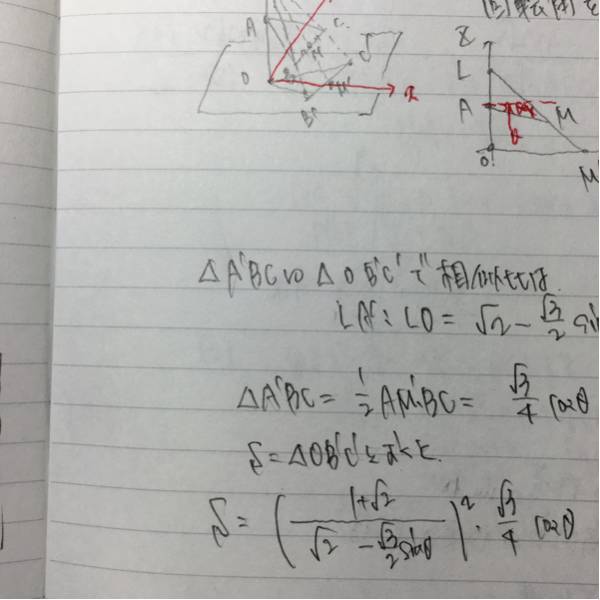 A
O
x
B'
Z
L
A
M
θ
O
M
△A'BC∽△OB'C'で相似比は
LA': LO = √2 - √3/2 sin
△A'BC = 1/2 A'M BC = √3/4 cosθ
S = △OB'C'とおくと.
S = ( (1+√2) / (√2 - √3/2 sinθ) )² · √3/4 cosθ